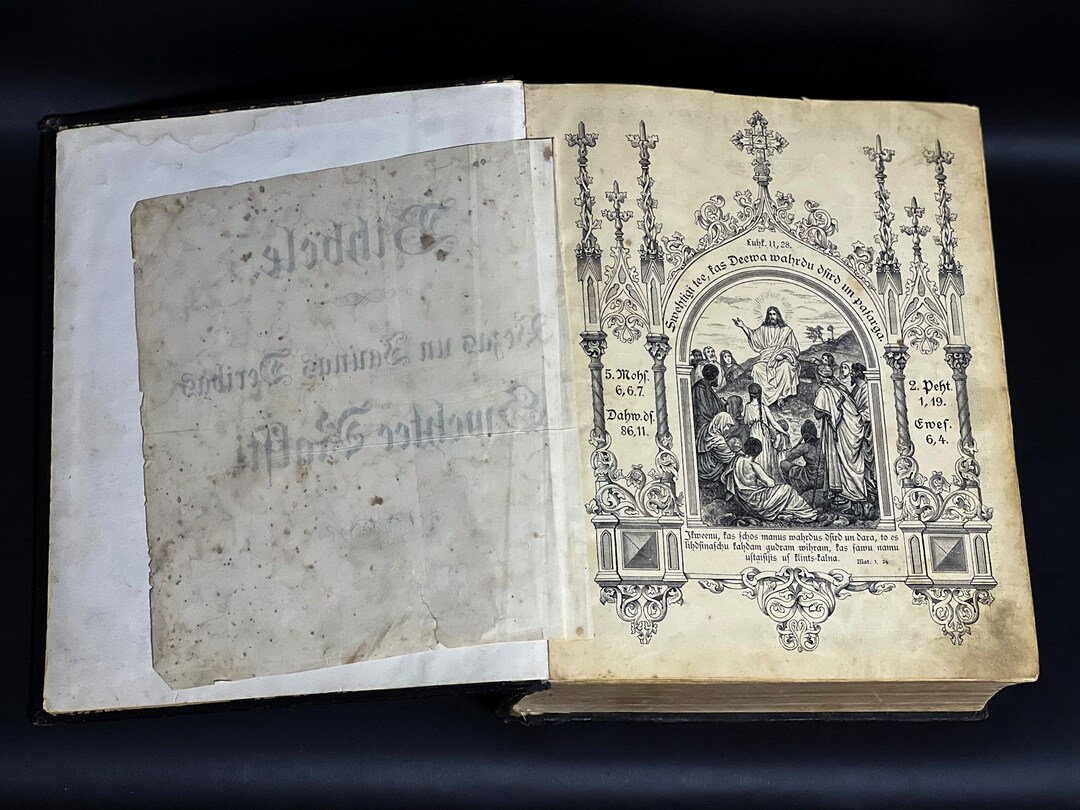 Bihbele.
un Jaunas Deribas
Luhk. 11, 28.
Swehtigi tee, kas Deewa wahrdu dſird un paſarga.
5. Mohſ.
6,6.7.
Dahw.dſ.
86,11.
2. Peht.
1, 19.
Eweſ.
6,4.
Ikweenu, kas ſchos manus wahrdus dſird un dara, to es
lihdſinaſchu kahdam gudram wihram, kas ſawu namu
uſtaiſijis uſ klints-kalna. Mat. 7, 24